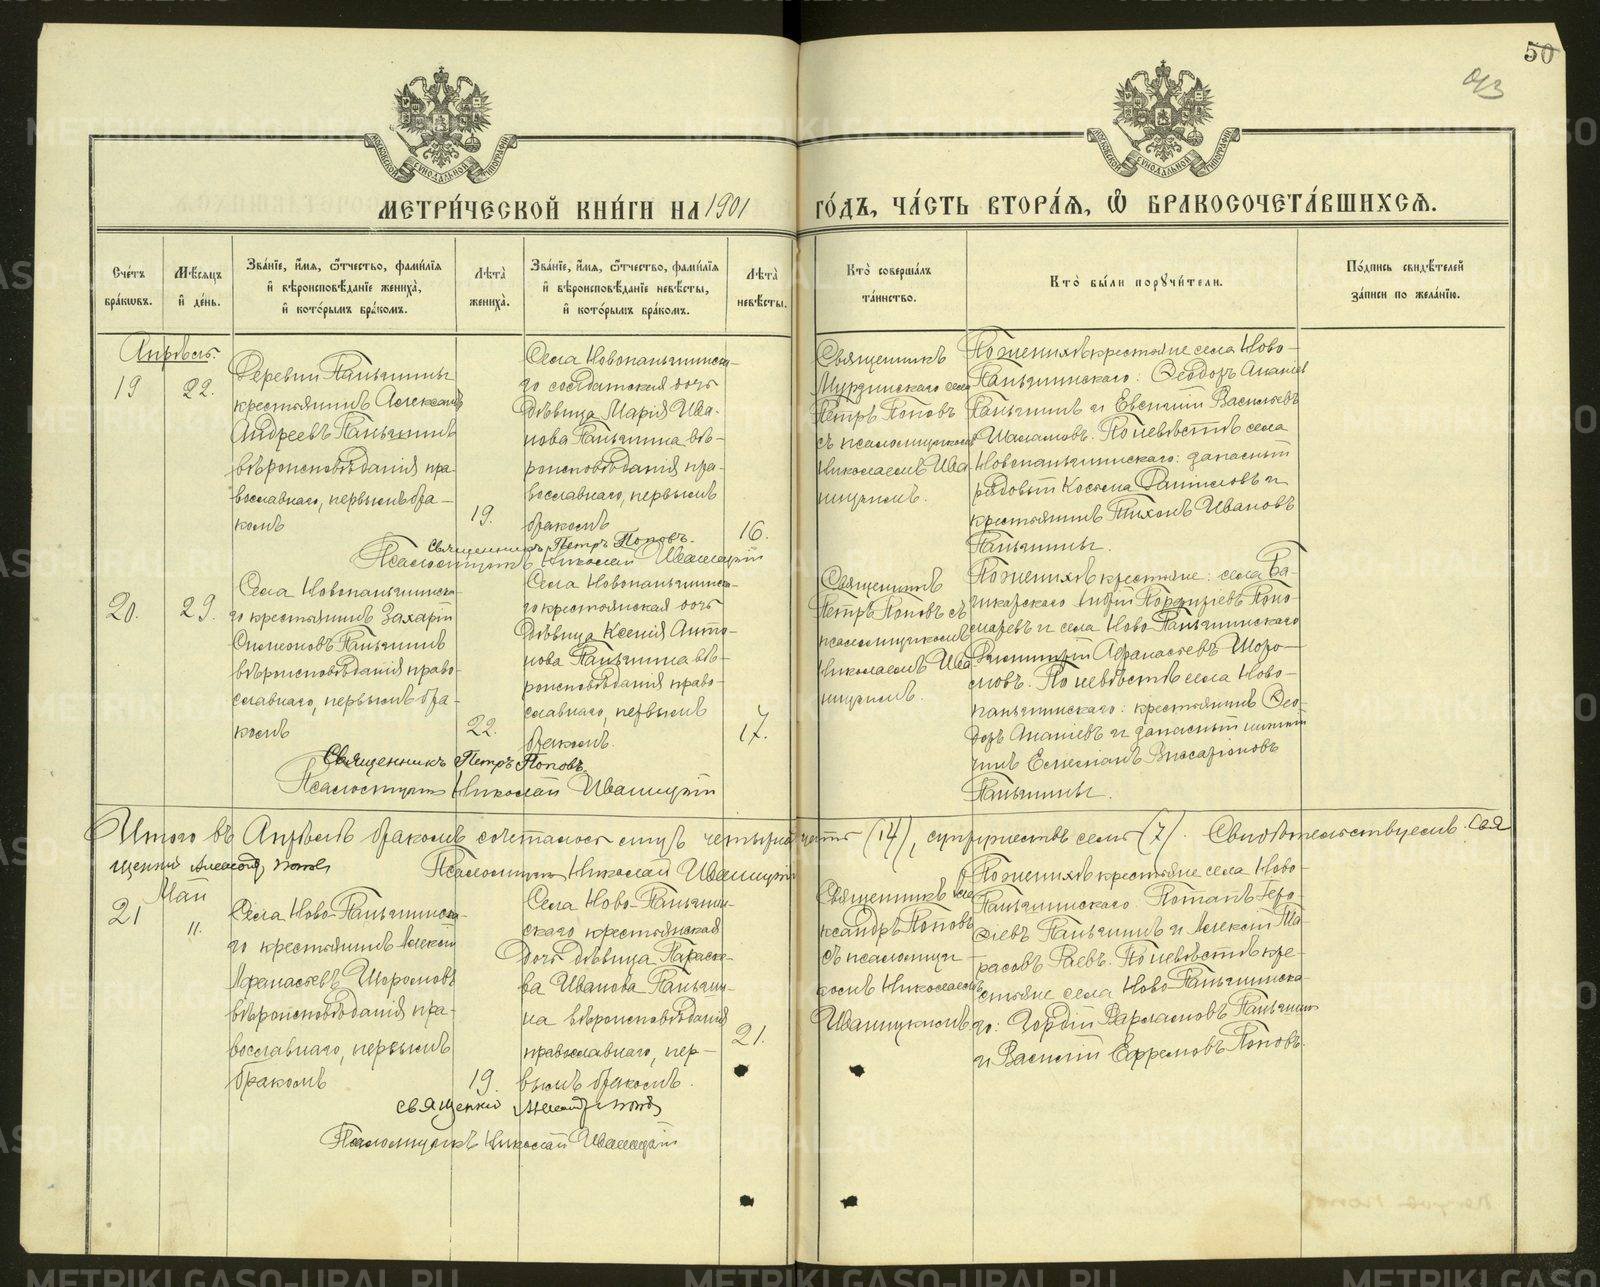 50
93
МЕТРИ́ЧЕСКОЙ КНИ́ГИ НА 1901
ГО́ДЪ, ЧА́СТЬ ВТОРА́Я, Ѡ҆ БРАКОСОЧЕТА́ВШИХСЯ.
Сче́тъ
бра́кѡвъ.
Мѣ́сяцъ
и҆ де́нь.
Зва́нїе, и҆́мя, ѻ҆́тчество, фами́лїя
и҆ вѣроисповѣ́данїе жениха̀,
и҆ кото́рымъ бра́комъ.
Лѣта̀
жениха̀.
Зва́нїе, и҆́мя, ѻ҆́тчество, фами́лїя
и҆ вѣроисповѣ́данїе невѣ́сты,
и҆ кото́рымъ бра́комъ.
Лѣта̀
невѣ́сты.
Кто̀ соверша́лъ
та́инство.
Кто̀ бы́ли поручи́тели.
По́дпись свидѣ́телей
за́писи по жела́нїю.
Апрѣль.
19
22.
Деревни Паньшины
крестьянинъ Алексѣй
Андреевъ Паньшинъ
вѣроисповѣданія пра-
вославнаго, первымъ бра-
комъ
19.
Села Новопаньшинска-
го солдатская дочь
дѣвица Марія Ива-
нова Паньшина вѣ-
роисповѣданія пра-
вославнаго, первымъ
бракомъ
16.
Священникъ
Мурзинскаго села
Петръ Поповъ
съ псаломщикомъ
Николаемъ Ива
ницкимъ.
По женихѣ крестьяне села Ново-
Паньшинскаго: Ѳеодоръ Ананіевъ
Паньшинъ и Евгеній Васильевъ
Шаламовъ. По невѣстѣ села
Новопаньшинскаго: запасный
рядовый Косьма Даниловъ и
крестьянинъ Тихонъ Ивановъ
Паньшины.
Священникъ Петръ Поповъ.
Псаломщикъ Николай Иваницкій
20.
29.
Села Новопаньшинска-
го крестьянинъ Захарій
Симеоновъ Паньшинъ
вѣроисповѣданія право-
славнаго, первымъ бра-
комъ
22.
Села Новопаньшинска-
го крестьянская дочь
дѣвица Ксенія Анто-
нова Паньшина вѣ-
роисповѣданія право-
славнаго, первымъ
бракомъ.
17.
Священникъ
Петръ Поповъ съ
псаломщикомъ
Николаемъ Ива
ницкимъ.
По женихѣ крестьяне: села Ба-
Порфиріевъ Поно-
маревъ и села Ново-Паньшинскаго
Афанасьевъ Шоро-
моновъ. По невѣстѣ села Ново-
паньшинскаго: крестьянинъ Ѳео-
доръ Ананіевъ и запасный нижній
чинъ Емеліанъ Виссаріоновъ
Паньшины.
Священникъ Петръ Поповъ.
Псаломщикъ Николай Иваницкій
Итого въ Апрѣлѣ бракомъ сочеталось лицъ четырнадцать (14), супружествъ семь (7). Свидѣтельствуемъ: Свя
щенникъ Александръ Поповъ Псаломщикъ Николай Иваницкій
Май
21
11.
Села Ново-Паньшинска-
го крестьянинъ Алексій
Афанасьевъ Шоромовъ
вѣроисповѣданія пра-
вославнаго, первымъ
бракомъ
19.
Села Ново-Паньшин-
скаго крестьянская
дочь дѣвица Параске-
ва Иванова Паньши-
на вѣроисповѣданія
православнаго, пер-
вымъ бракомъ.
21.
Священникъ Але
ксандръ Поповъ
съ псаломщи-
комъ Николаемъ
Иваницкимъ.
По женихѣ крестьяне села Ново-
Паньшинскаго: Потапъ Іеро-
ѳіевъ Паньшинъ и Алексій Та-
расовъ Раевъ. По невѣстѣ кре-
стьяне села Ново-Паньшинска-
го: Гордій Варлаамовъ Паньшинъ
и Василій Ефремовъ Поповъ.
Священникъ Александръ Поповъ
Псаломщикъ Николай Иваницкій